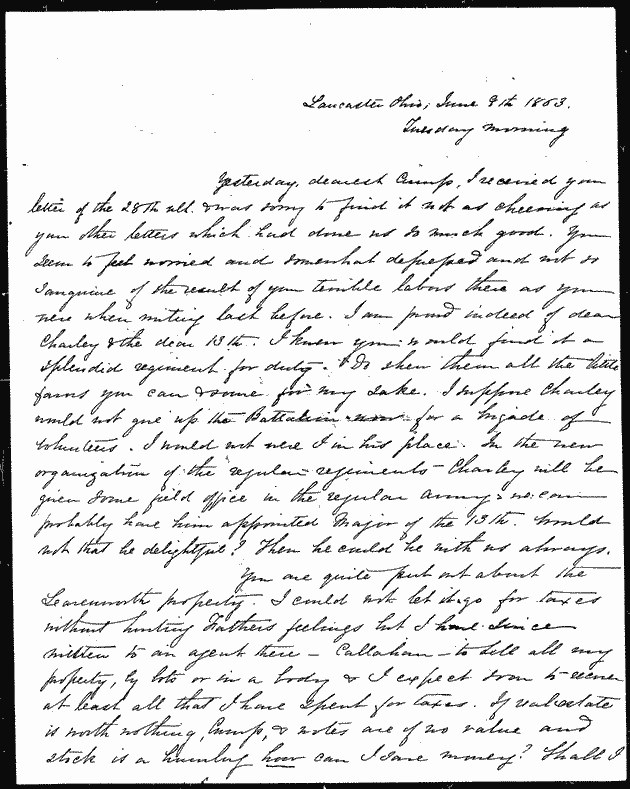 Lancaster Ohio, June 9th 1863.
Tuesday morning
Yesterday, dearest Cump, I received your
letter of the 28th ult. & was sorry to find it not as cheering as
your other letters which had done us so much good. You
seem to feel worried and somewhat depressed and not so
sanguine of the result of your terrible labors there as you
were when writing last before. I am proud indeed of dear
Charley & the dear 13th. I knew you would find it a
splendid regiment for duty. Do shew them all the little
favors you can & some for my sake. I suppose Charley
would not give up the Battalion now for a brigade of
Volunteers. I would not were I in his place. In the new
organization of the regular regiments Charley will be
given some field office in the regular army & we can
probably have him appointed Major of the 13th. Would
not that be delightful? Then he could be with us always.
You are quite put out about the
Leavenworth property. I could not let it go for taxes
without hurting Fathers feelings but I have since
written to an agent there - Callahan - to sell all my
property, by lots or in a body & I expect soon to recover
at least all that I have spent for taxes. If real estate
is worth nothing, Cump, & notes are of no value and
stock is a humbug how can I save money? Shall I